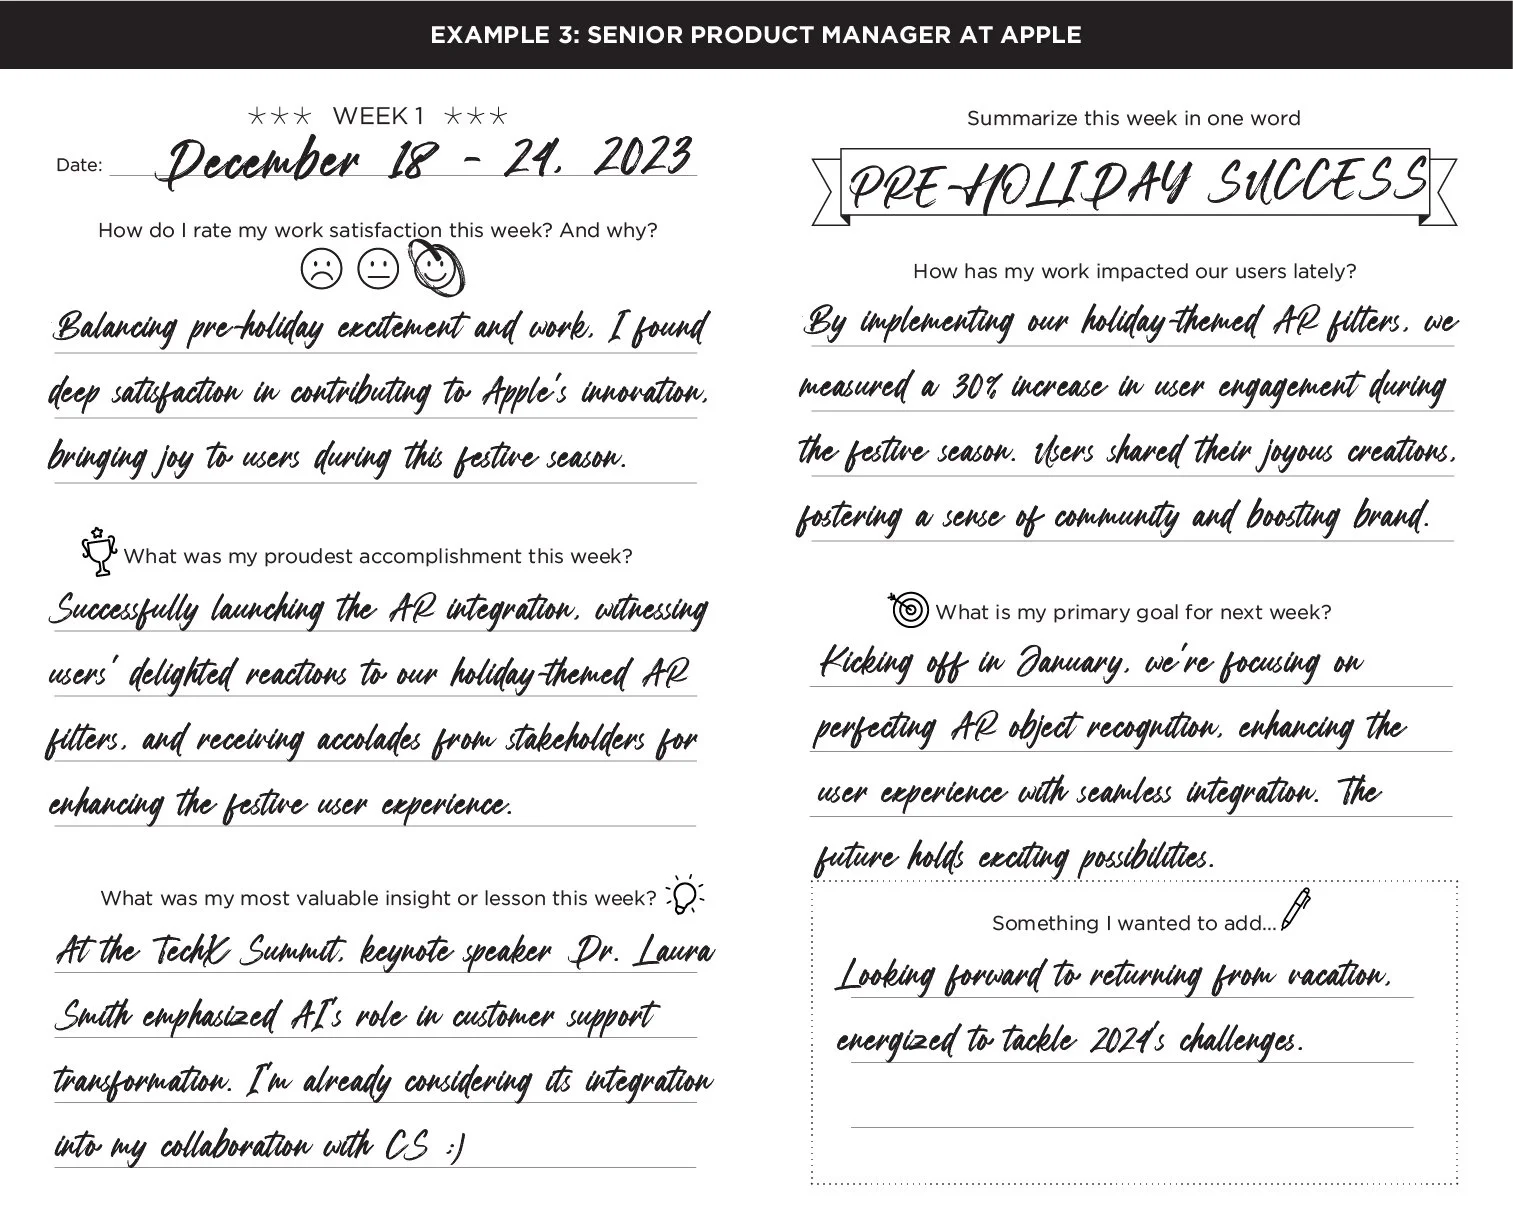 EXAMPLE 3: SENIOR PRODUCT MANAGER AT APPLE
WEEK 1
Date: December 18 - 24, 2023
How do I rate my work satisfaction this week? And why?
Balancing pre-holiday excitement and work, I found
deep satisfaction in contributing to Apple's innovation,
bringing joy to users during this festive season.
What was my proudest accomplishment this week?
Successfully launching the AR integration, witnessing
users' delighted reactions to our holiday-themed AR
filters, and receiving accolades from stakeholders for
enhancing the festive user experience.
What was my most valuable insight or lesson this week?
At the TechX Summit, keynote speaker Dr. Laura
Smith emphasized AI's role in customer support
transformation. I'm already considering its integration
into my collaboration with CS :)
Summarize this week in one word
PRE-HOLIDAY SUCCESS
How has my work impacted our users lately?
By implementing our holiday-themed AR filters, we
measured a 30% increase in user engagement during
the festive season. Users shared their joyous creations,
fostering a sense of community and boosting brand.
What is my primary goal for next week?
Kicking off in January, we're focusing on
perfecting AR object recognition, enhancing the
user experience with seamless integration. The
future holds exciting possibilities.
Something I wanted to add...
Looking forward to returning from vacation,
energized to tackle 2024's challenges.